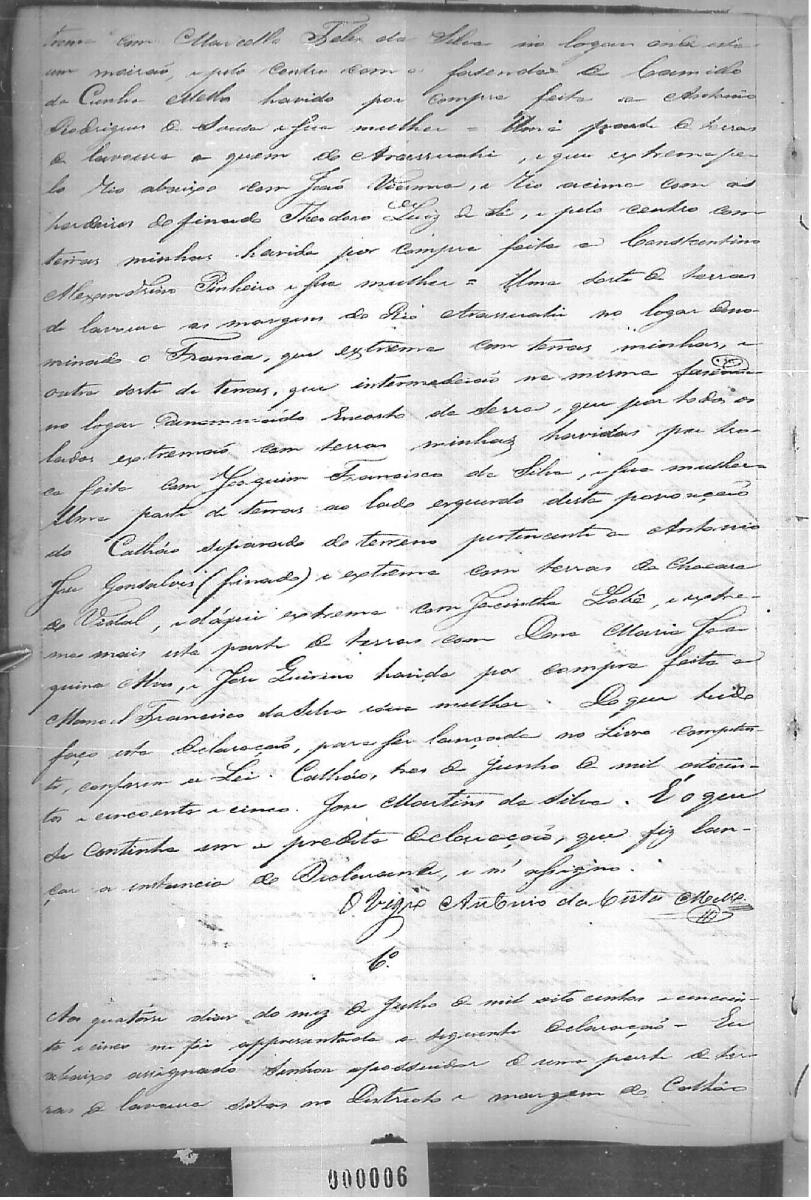 trema com Marcella Felis da Silva no logar onde esta
um meirão, e pelo centro com a fasenda de Camillo
da Cunha Mello havido por compra feita a Antonio
Rodrigues de Sousa e sua mulher = Uma parte de terras
de lavoura a quem do Arassuahi, e que extrema pe-
lo Rio abaixo com João Vianna, e Rio acima com os
herdeiros do finado Theodoro Luiz de Sá, e pelo centro com
terras minhas havida por compra feita a Constantino
Alexandrino Pinheiro e sua mulher = Uma sorte de terras
de lavoura as margens do Rio Arassuahi no logar deno-
minado o Franca, que extrema com terras minhas, e
outra sorte de terras, que intermedeião na mesma fasenda
no logar Encosto da Serra, que por todos os
lados extremão com terras minhas havidas por tro-
ca feita com Joaquim Francisco da Silva, e sua mulher =
Uma parte de terras ao lado esquerdo desta povoação
do Calháo separado do terreno pertencente a Antonio
Jose Gonsalves (finado) e extrema com terras da Chacara
do Vidal, e daqui extrema com Jacintha Lobê, e extre-
ma mais esta parte de terras com Dona Maria Joa-
quina Alves, e Jose Quirino havida por compra feita a
Manoel Francisco da Silva e sua mulher. Do que tudo
faço esta declaração, para ser lançada no Livro competen-
te, conforme a Lei. Calháo, tres de Junho de mil oitocen-
tos e cincoenta e cinco. Jose Martins da Silva. E' o que
se continha em a predita declaração, que fiz lan-
çar a instancia do Declarante, e m' assigno.
O Vigrº Antonio da Costa Mello
6º
Aos quatorse dias do mez de Julho de mil oito centos e cincoen-
ta e cinco me foi appresentada a seguinte declaração = Eu
abaixo assignado Senhor e possuidor de uma parte de ter-
ras de lavoura sitas no Districto e margem do Calháo
000006